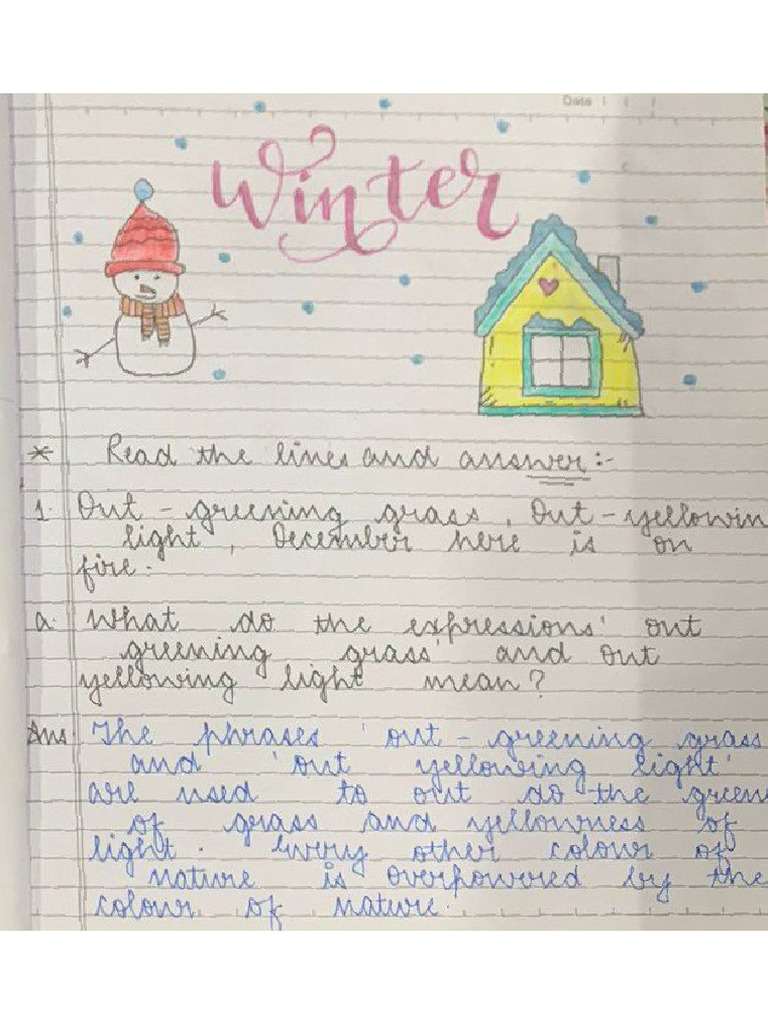 Date
Winter
* Read the lines and answer:-
1. Out - greening grass, Out - yellowin
light, December here is on
fire.
a. What do the expressions' out
greening grass' and out
yellowing light mean?
Ans The phrases 'out - greening grass
and 'out yellowing light'
are used to out do the green
of grass and yellowness of
light. Every other colour of
nature is overpowored by the
colour of nature.